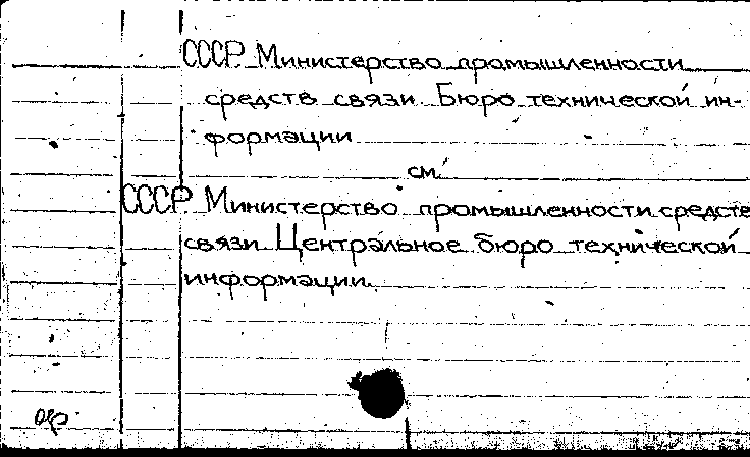 СССР Министерство промышленности
средств связи Бюро технической ин-
формации
см.
СССР Министерство промышленности средств
связи Центральное бюро технической
информации.